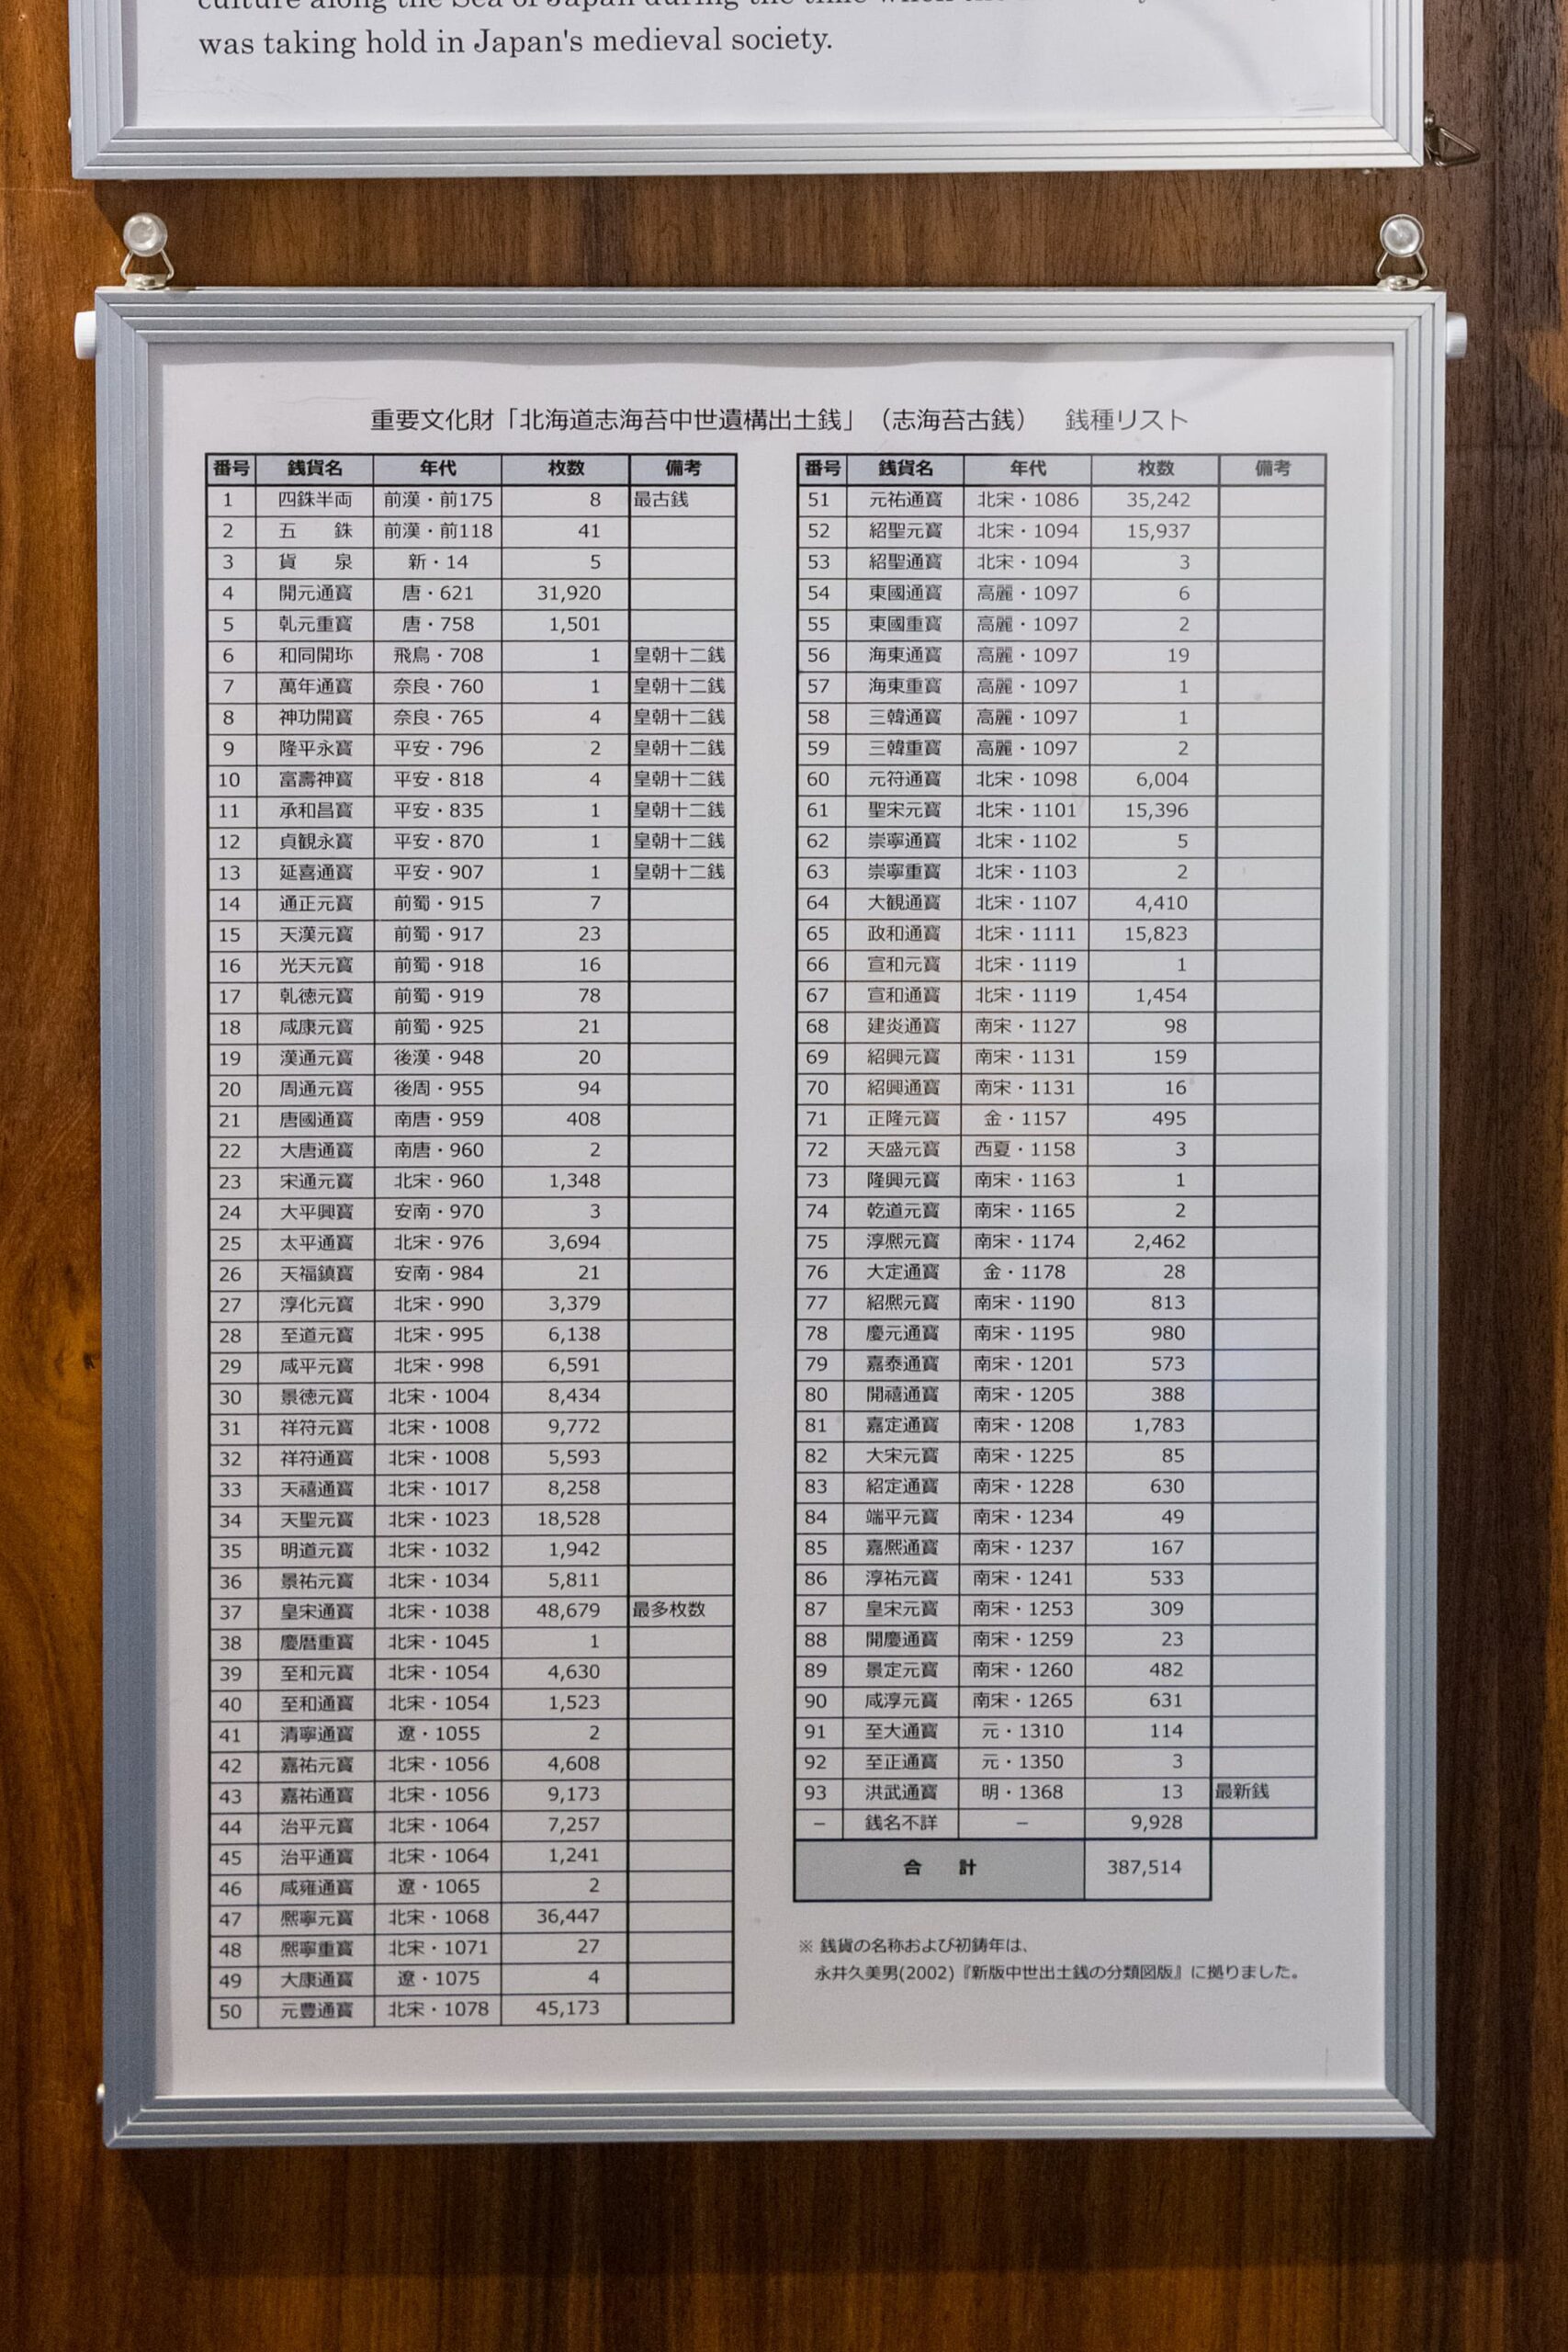 was taking hold in Japan's medieval society.
重要文化財「北海道志海苔中世遺構出土銭」（志海苔古銭）　銭種リスト
番号 銭貨名 年代 枚数 備考
1 四銖半両 前漢・前175 8 最古銭
2 五　　銖 前漢・前118 41
3 貨　　泉 新・14 5
4 開元通寳 唐・621 31,920
5 乹元重寳 唐・758 1,501
6 和同開珎 飛鳥・708 1 皇朝十二銭
7 萬年通寳 奈良・760 1 皇朝十二銭
8 神功開寳 奈良・765 4 皇朝十二銭
9 隆平永寳 平安・796 2 皇朝十二銭
10 富壽神寳 平安・818 4 皇朝十二銭
11 承和昌寳 平安・835 1 皇朝十二銭
12 貞観永寳 平安・870 1 皇朝十二銭
13 延喜通寳 平安・907 1 皇朝十二銭
14 通正元寳 前蜀・915 7
15 天漢元寳 前蜀・917 23
16 光天元寳 前蜀・918 16
17 乹徳元寳 前蜀・919 78
18 咸康元寳 前蜀・925 21
19 漢通元寳 後漢・948 20
20 周通元寳 後周・955 94
21 唐國通寳 南唐・959 408
22 大唐通寳 南唐・960 2
23 宋通元寳 北宋・960 1,348
24 大平興寳 安南・970 3
25 太平通寳 北宋・976 3,694
26 天福鎮寳 安南・984 21
27 淳化元寳 北宋・990 3,379
28 至道元寳 北宋・995 6,138
29 咸平元寳 北宋・998 6,591
30 景徳元寳 北宋・1004 8,434
31 祥符元寳 北宋・1008 9,772
32 祥符通寳 北宋・1008 5,593
33 天禧通寳 北宋・1017 8,258
34 天聖元寳 北宋・1023 18,528
35 明道元寳 北宋・1032 1,942
36 景祐元寳 北宋・1034 5,811
37 皇宋通寳 北宋・1038 48,679 最多枚数
38 慶暦重寳 北宋・1045 1
39 至和元寳 北宋・1054 4,630
40 至和通寳 北宋・1054 1,523
41 清寧通寳 遼・1055 2
42 嘉祐元寳 北宋・1056 4,608
43 嘉祐通寳 北宋・1056 9,173
44 治平元寳 北宋・1064 7,257
45 治平通寳 北宋・1064 1,241
46 咸雍通寳 遼・1065 2
47 熈寧元寳 北宋・1068 36,447
48 熈寧重寳 北宋・1071 27
49 大康通寳 遼・1075 4
50 元豊通寳 北宋・1078 45,173
番号 銭貨名 年代 枚数 備考
51 元祐通寳 北宋・1086 35,242
52 紹聖元寳 北宋・1094 15,937
53 紹聖通寳 北宋・1094 3
54 東國通寳 高麗・1097 6
55 東國重寳 高麗・1097 2
56 海東通寳 高麗・1097 19
57 海東重寳 高麗・1097 1
58 三韓通寳 高麗・1097 1
59 三韓重寳 高麗・1097 2
60 元符通寳 北宋・1098 6,004
61 聖宋元寳 北宋・1101 15,396
62 崇寧通寳 北宋・1102 5
63 崇寧重寳 北宋・1103 2
64 大観通寳 北宋・1107 4,410
65 政和通寳 北宋・1111 15,823
66 宣和元寳 北宋・1119 1
67 宣和通寳 北宋・1119 1,454
68 建炎通寳 南宋・1127 98
69 紹興元寳 南宋・1131 159
70 紹興通寳 南宋・1131 16
71 正隆元寳 金・1157 495
72 天盛元寳 西夏・1158 3
73 隆興元寳 南宋・1163 1
74 乾道元寳 南宋・1165 2
75 淳熈元寳 南宋・1174 2,462
76 大定通寳 金・1178 28
77 紹熈元寳 南宋・1190 813
78 慶元通寳 南宋・1195 980
79 嘉泰通寳 南宋・1201 573
80 開禧通寳 南宋・1205 388
81 嘉定通寳 南宋・1208 1,783
82 大宋元寳 南宋・1225 85
83 紹定通寳 南宋・1228 630
84 端平元寳 南宋・1234 49
85 嘉熈通寳 南宋・1237 167
86 淳祐元寳 南宋・1241 533
87 皇宋元寳 南宋・1253 309
88 開慶通寳 南宋・1259 23
89 景定元寳 南宋・1260 482
90 咸淳元寳 南宋・1265 631
91 至大通寳 元・1310 114
92 至正通寳 元・1350 3
93 洪武通寳 明・1368 13 最新銭
− 銭名不詳 − 9,928
合　計 387,514
※ 銭貨の名称および初鋳年は、
永井久美男(2002)『新版中世出土銭の分類図版』に拠りました。